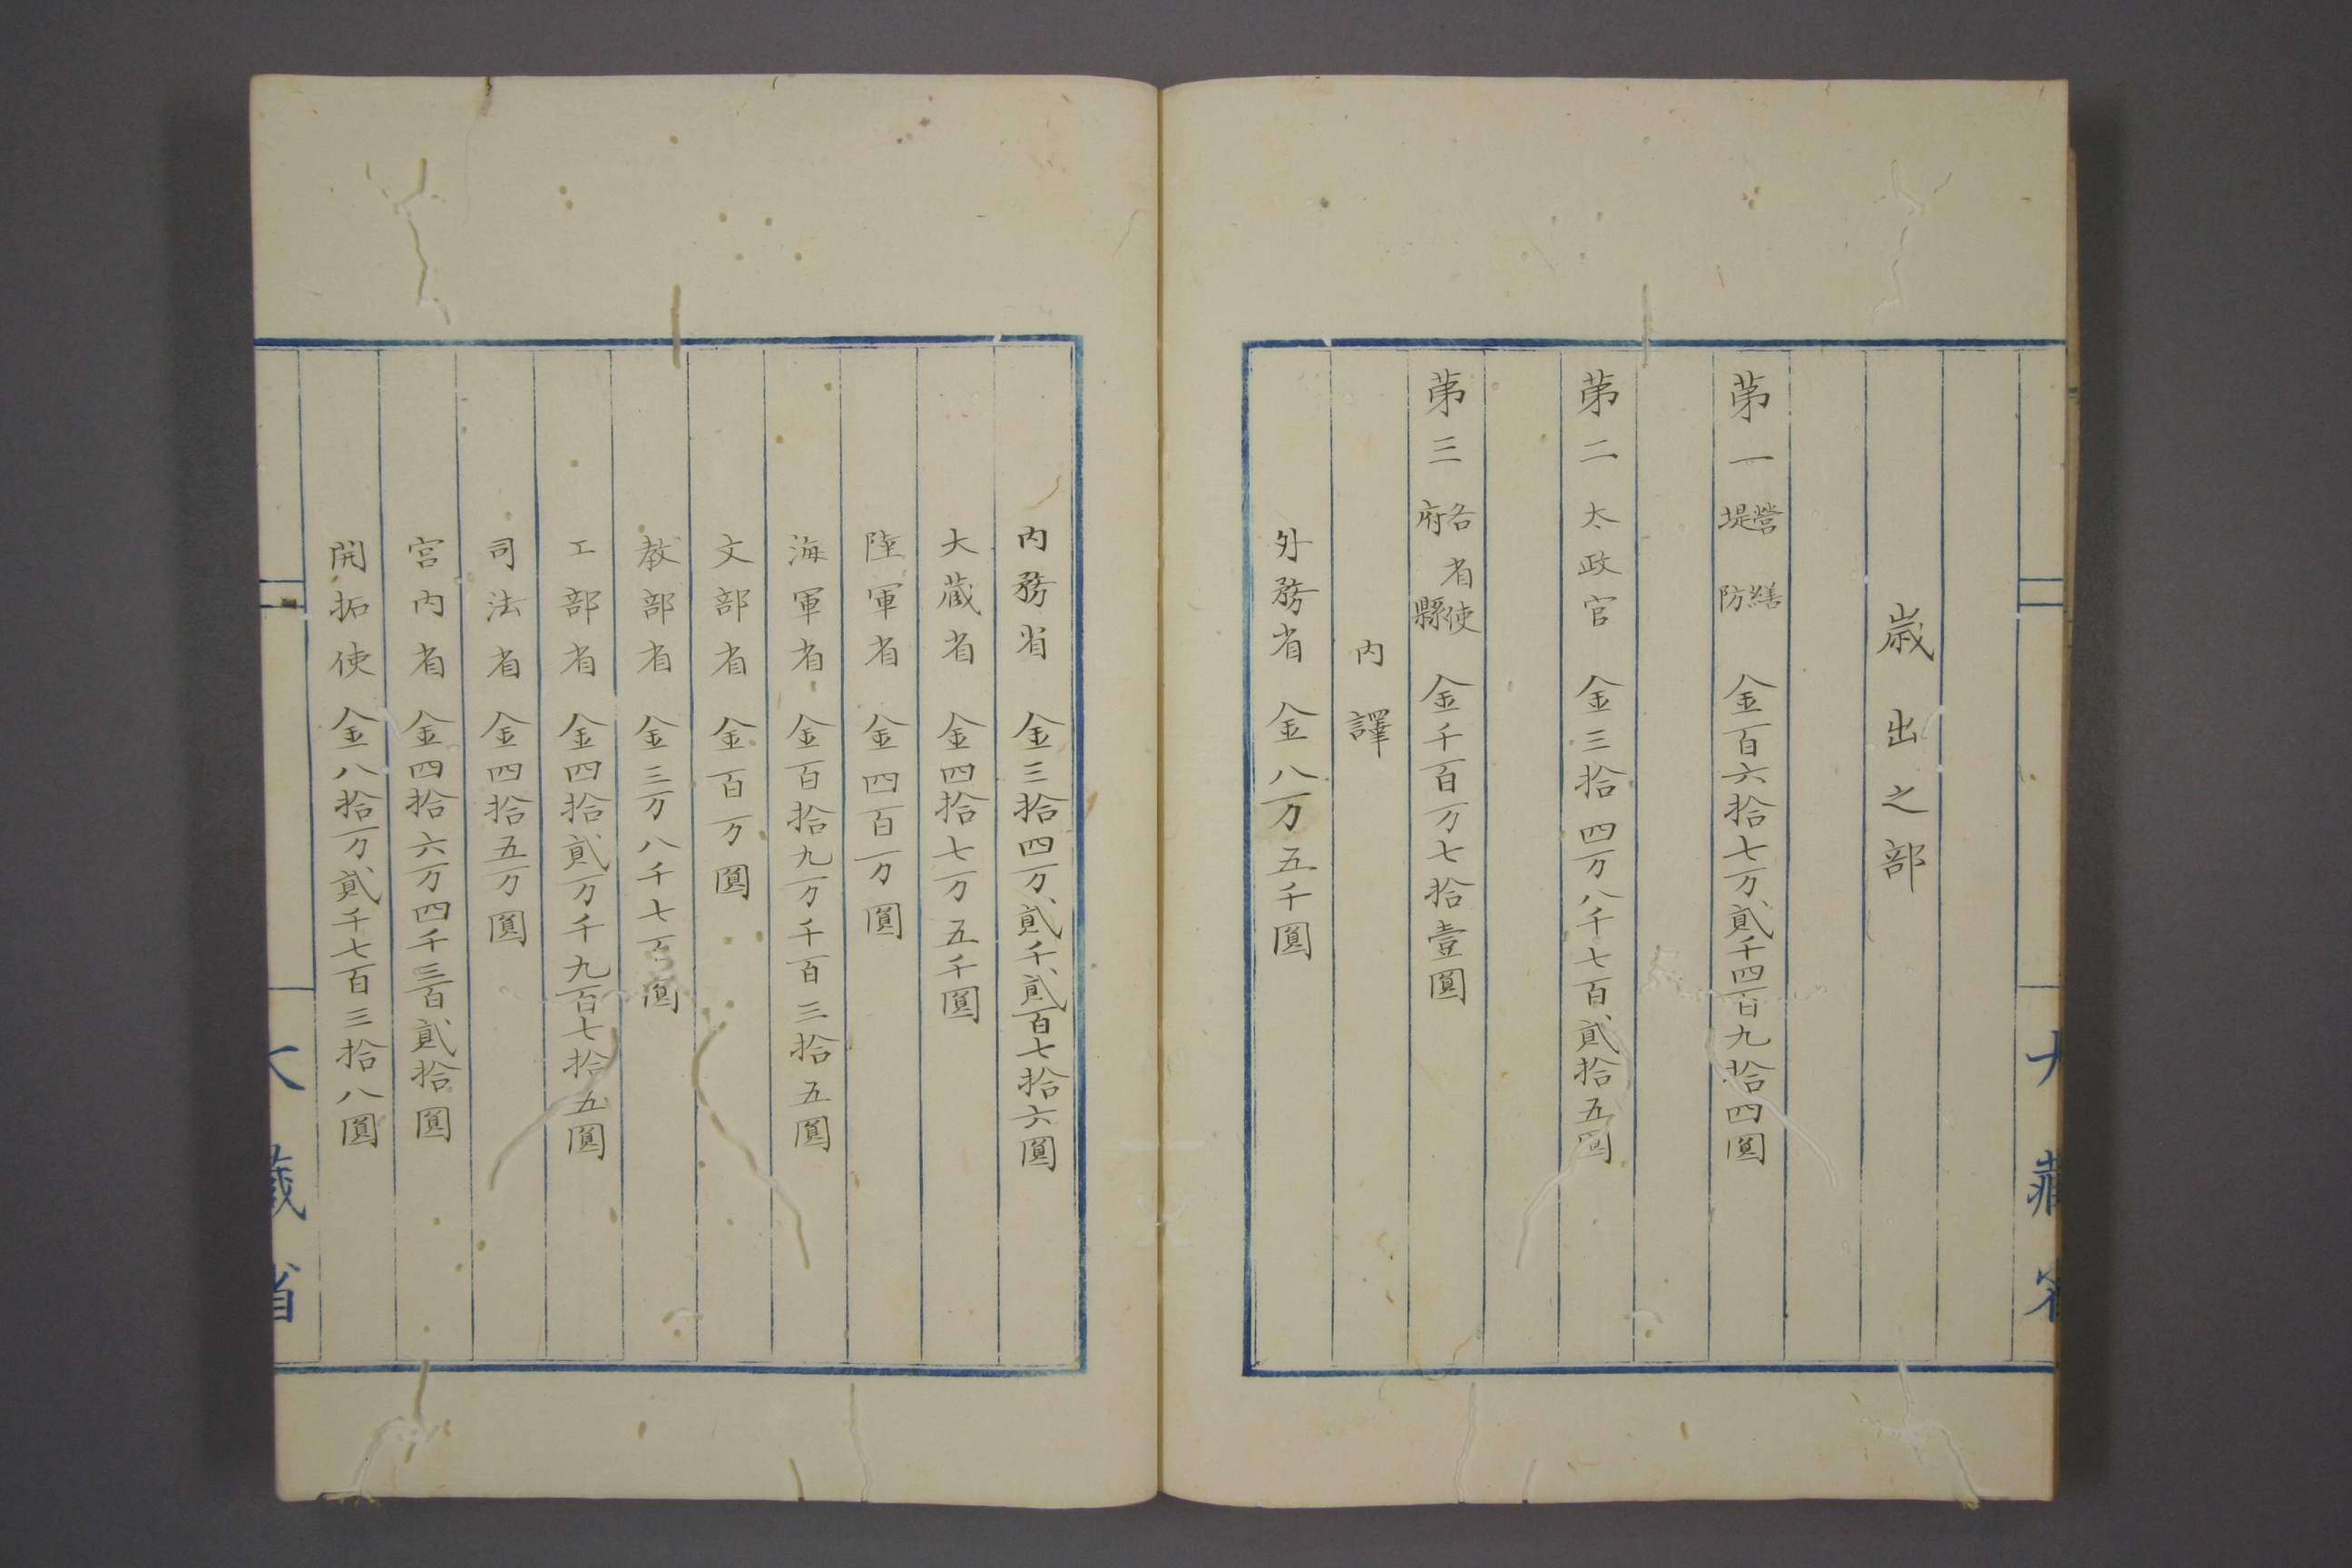 歳出之部
第一 營繕堤防 金百六拾七万貳千四百九拾四圓
第二 太政官 金三拾四万八千七百貳拾五圓
第三 各省使府縣 金千百万七拾壹圓
内譯
外務省 金八万五千圓
内務省 金三拾四万貳千貳百七拾六圓
大蔵省 金四拾七万五千圓
陸軍省 金四百万圓
海軍省 金百拾九万千百三拾五圓
文部省 金百万圓
教部省 金三万八千七百圓
工部省 金四拾貳万千九百七拾五圓
司法省 金四拾五万圓
宮内省 金四拾六万四千三百貳拾圓
開拓使 金八拾万貳千七百三拾八圓
大藏省